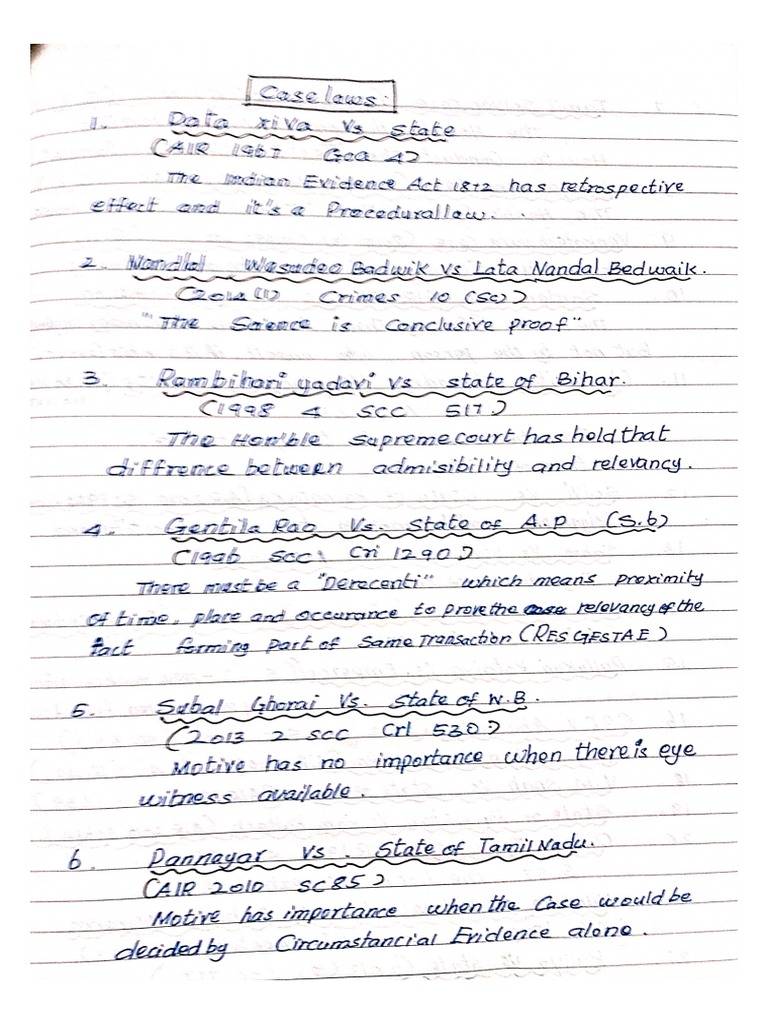 Case laws:
1. Data xiva vs state
(AIR 1967 Goa 4)
The Indian Evidence Act 1872 has retrospective
effect and it's a Procedural law.
2. Nandlal Wasudeo Badwik vs Lata Nandal Bedwaik.
(2014 (1) Crimes 10 (SC))
"The Science is Conclusive proof"
3. Rambihari yadavi vs state of Bihar.
(1998 4 SCC 517)
The Hon'ble supreme court has hold that
diffrence between admisibility and relevancy.
4. Gentila Rao Vs. State of A.P (S.6)
(1996 SCC Cri 1290)
There must be a "Derecenti" which means proximity
of time, place and occurance to prove the relevancy of the
fact forming part of Same Transaction (RES GESTAE)
5. Subal Ghorai Vs. State of W.B.
(2013 2 SCC Crl 530)
Motive has no importance when there is eye
witness available.
6. Pannayar vs. State of Tamil Nadu.
(AIR 2010 SC 85)
Motive has importance when the Case would be
decided by Circumstancial Evidence alone.